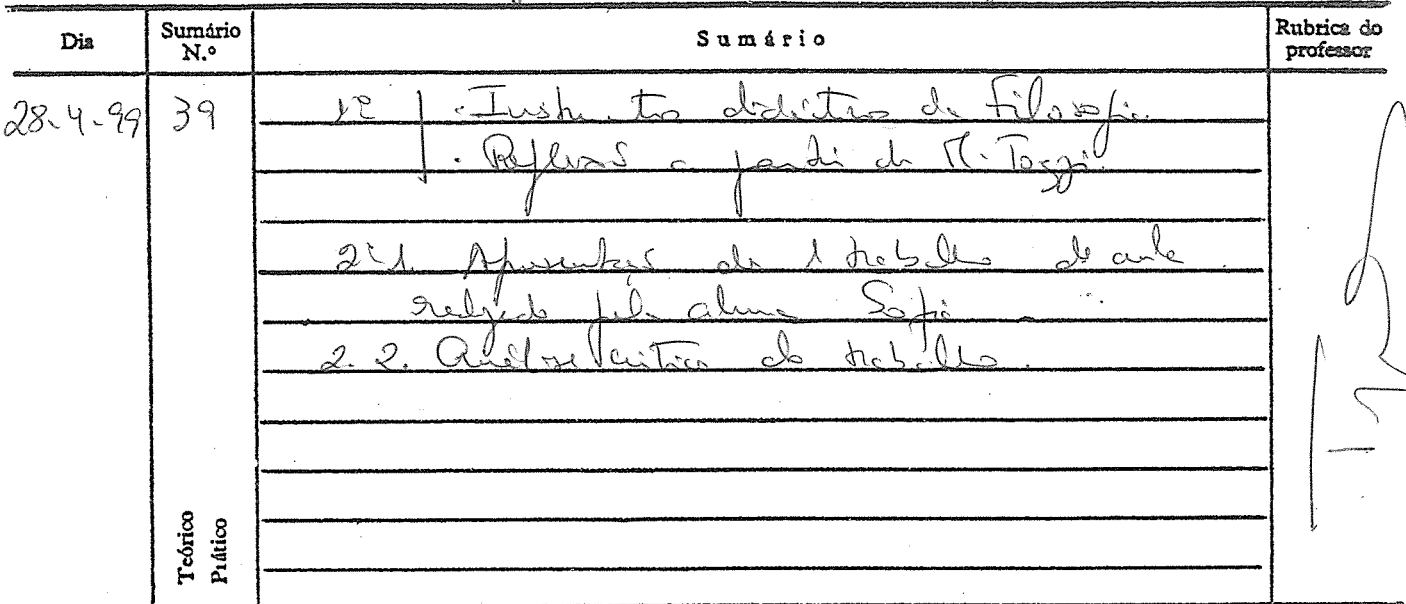 Dia Sumário N.º Sumário Rubrica do professor
28-4-99 39 1º · Instrumentos didácticos da Filosofia.
· Reflexão a partir de M. Tozzi.
2.1. Apresentação de 1 trabalho de aula
realizado pela aluna Sofia
2.2. Análise crítica do trabalho.
Teórico
Prático